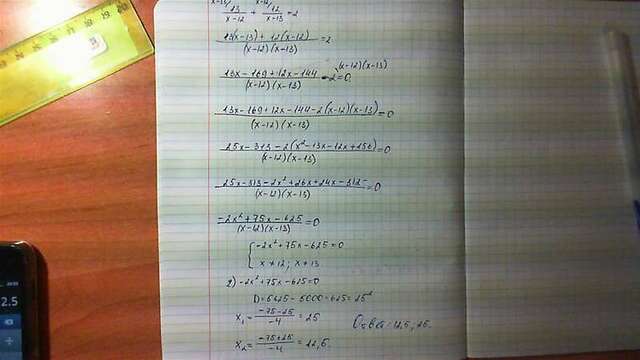 13/(x-12) + 12/(x-13) = 2
(13(x-13) + 12(x-12))/((x-12)(x-13)) = 2
(13x - 169 + 12x - 144)/((x-12)(x-13)) - 2 = 0 (x-12)(x-13)
(13x - 169 + 12x - 144 - 2(x-12)(x-13))/((x-12)(x-13)) = 0
(25x - 313 - 2(x² - 13x - 12x + 156))/((x-12)(x-13)) = 0
(25x - 313 - 2x² + 26x + 24x - 312)/((x-12)(x-13)) = 0
(-2x² + 75x - 625)/((x-12)(x-13)) = 0
{ -2x² + 75x - 625 = 0
x ≠ 12; x ≠ 13
1) -2x² + 75x - 625 = 0
D = 5625 - 5000 = 625 = 25²
x₁ = (-75-25)/-4 = 25
Ответ: 12,5, 25.
x₂ = (-75+25)/-4 = 12,5.
2.5